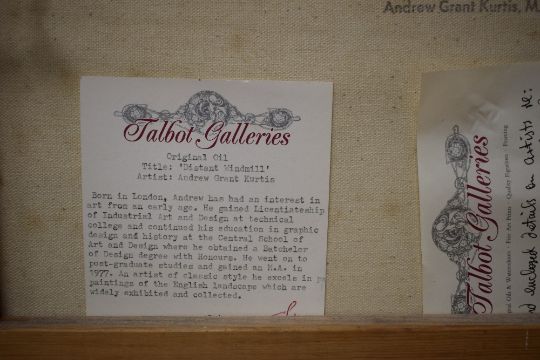 Andrew Grant Kurtis, M.
Talbot Galleries
Original Oil
Title: 'Distant Windmill'
Artist: Andrew Grant Kurtis
Born in London, Andrew has had an interest in
art from an early age. He gained Licentiateship
of Industrial Art and Design at technical
college and continued his education in graphic
design and history at the Central School of
Art and Design where he obtained a Batchelor
of Design degree with Honours. He went on to
post-graduate studies and gained an M.A. in
1977. An artist of classic style he excels in
paintings of the English landscape which are
widely exhibited and collected.
Talbot Galleries
Oils & Watercolours · Fine Art Prints · Quality Figurines · Framing
enclosed details on artists re: